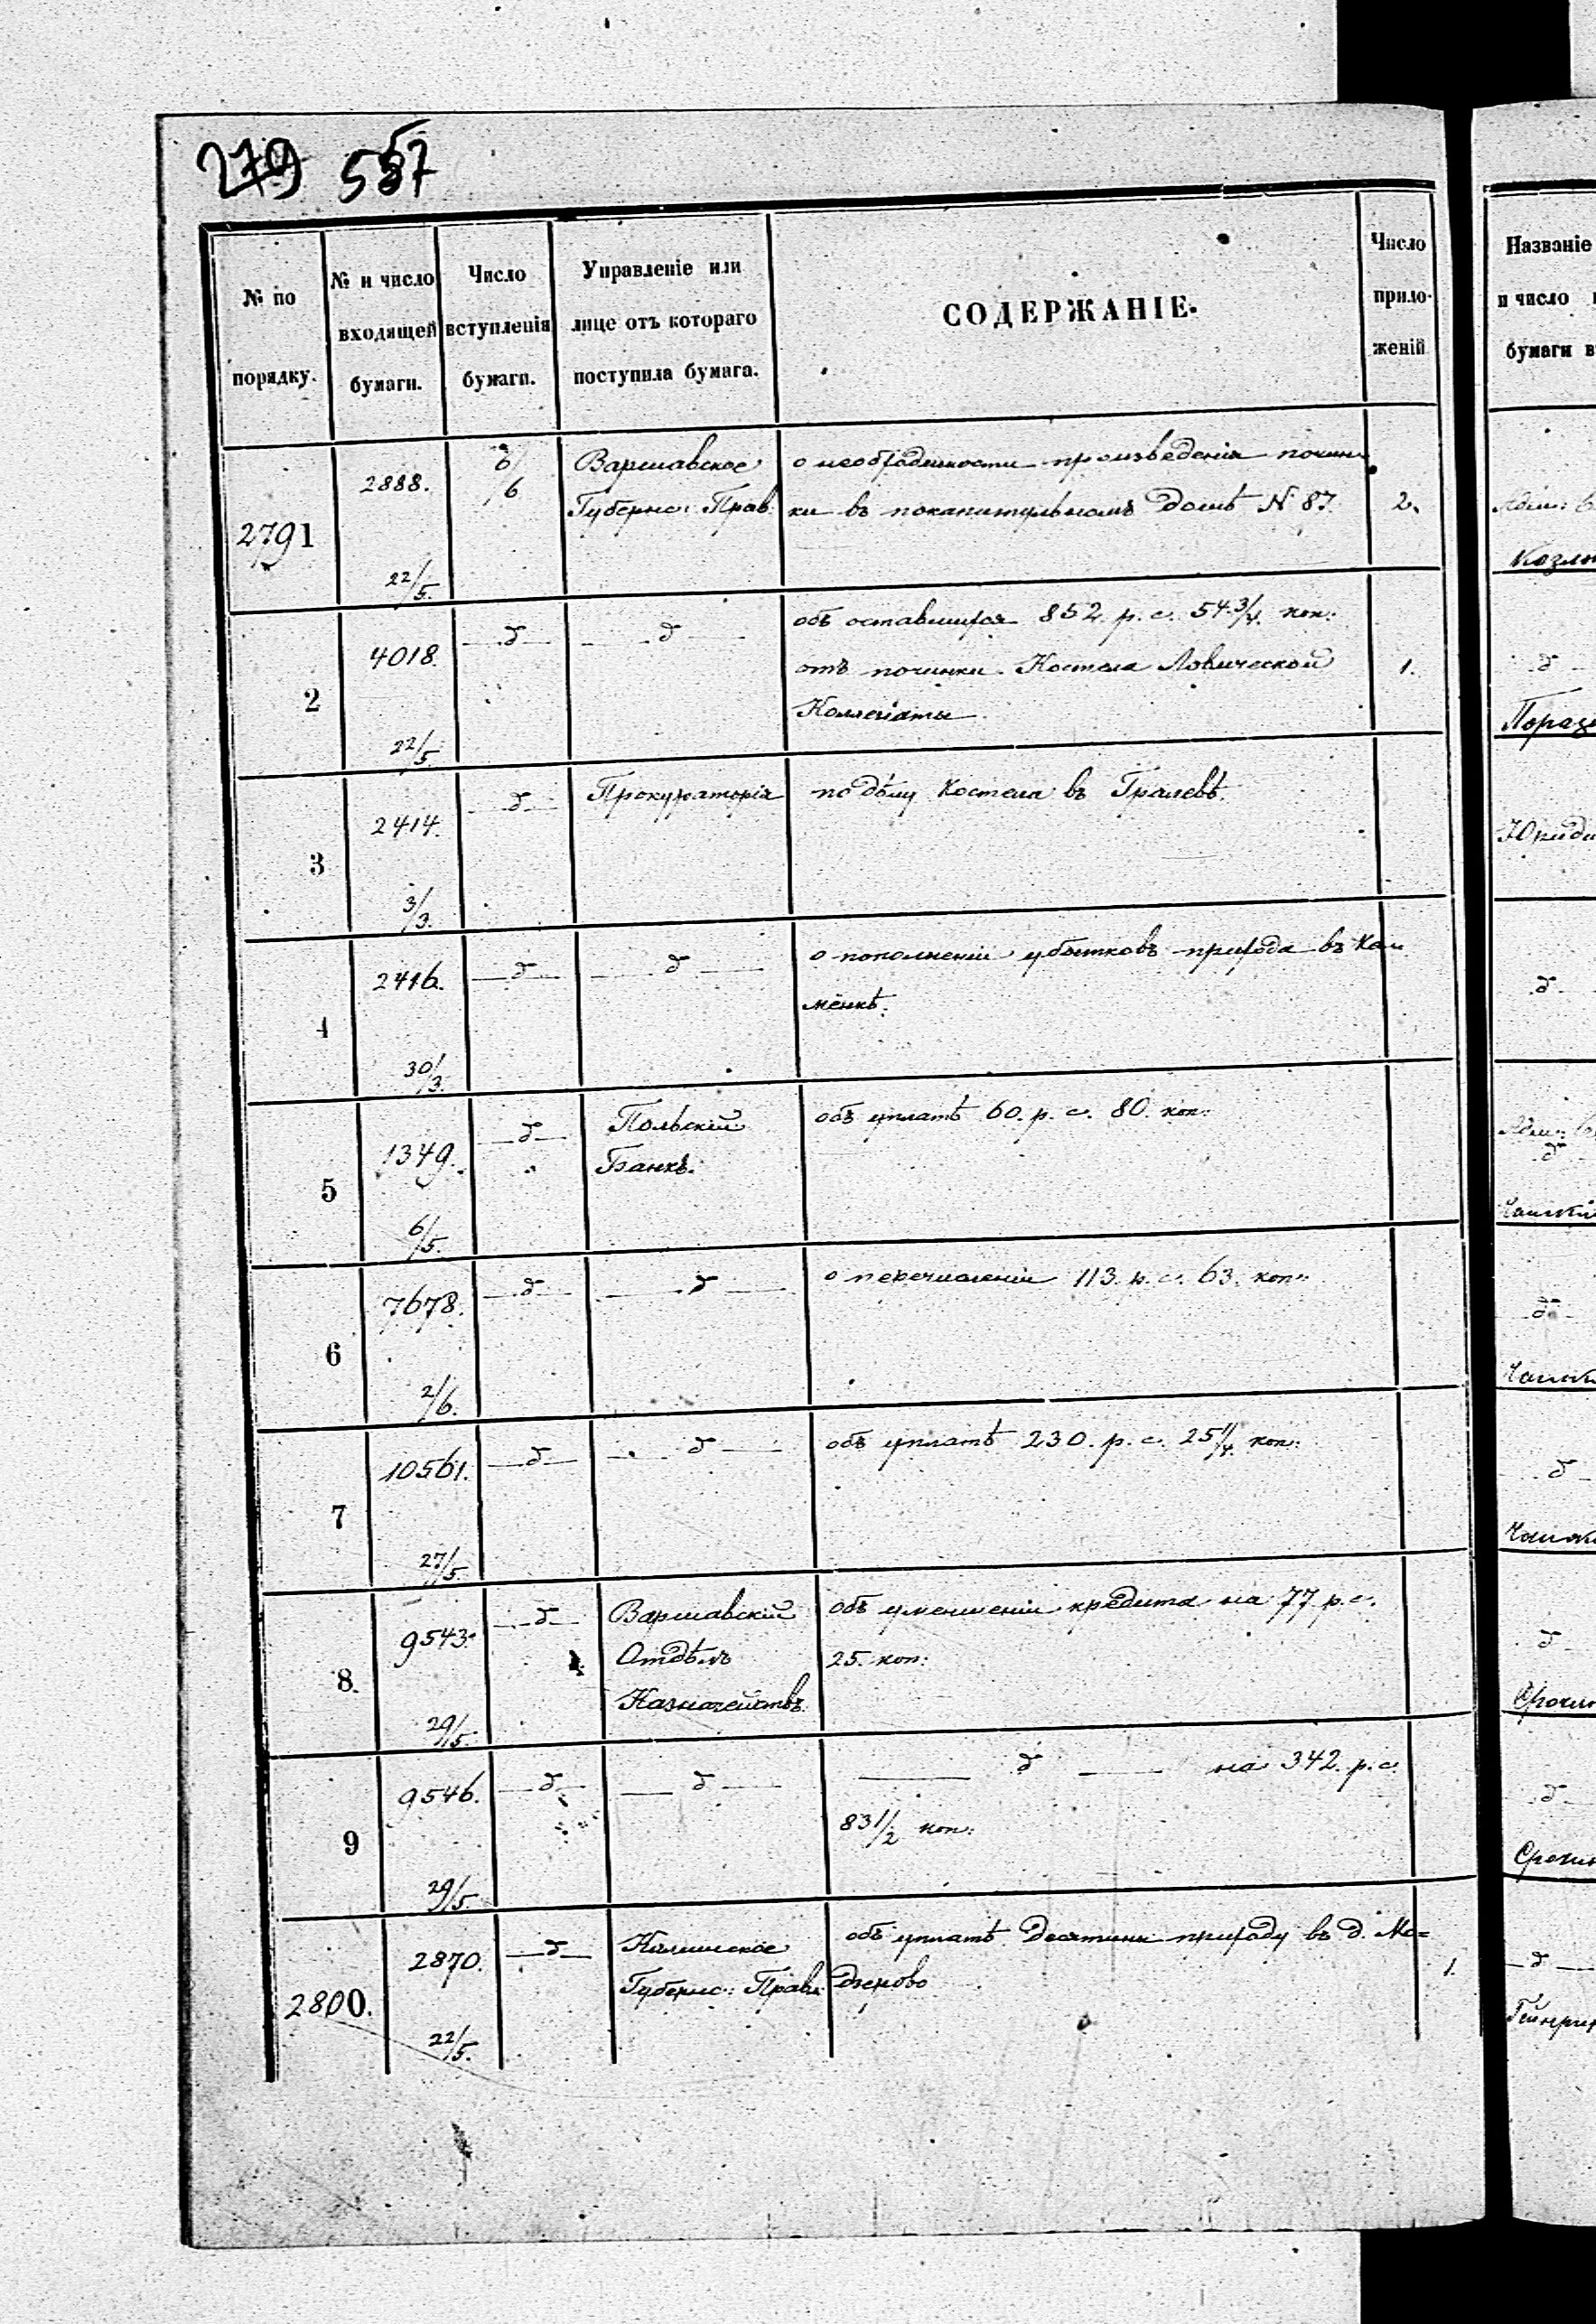 279 557
№ по порядку.
№ и число входящей бумаги.
Число вступленія бумаги.
Управленіе или лице отъ котораго поступила бумага.
СОДЕРЖАНІЕ.
Число приложеній
Названіе
и число
бумаги
2791
2888.
22/5.
6/6
Варшавское
Губернс: Прав:
о необходимости произведенія почин
ки въ покапитульномъ домѣ № 87.
2.
2
4018.
22/5.
д
д
объ оставшихся 852. р. с. 54.3/4. коп:
отъ починки Костела Ловической
Коллегіаты
1.
д
3
2414.
3/3.
д
Прокураторія
по дѣлу Костела въ Гралевѣ.
4
2416.
30/3.
д
д
о пополненіи убытковъ прихода въ Ка
менкѣ.
д
5
1349.
6/5.
д
Польскій
Банкъ.
объ уплатѣ 60. р. с. 80. коп:
д
6
7678.
2/6.
д
д
о перечисленіи 113. р. с. 63. коп:
д
7
10561.
27/5.
д
д
объ уплатѣ 230. р. с. 25 1/4. коп:
д
8.
9543.
29/5.
д
Варшавскій
Отдѣлъ
Казначействъ.
объ уменшеніи кредита на 77 р. с.
25. коп:
д
9
9546.
29/5.
д
д
д на 342. р. с.
83 1/2 коп:
д
2800.
2870.
22/5.
д
Калишское
Губернс: Правл:
объ уплатѣ десятины приходу въ д.
1.
д